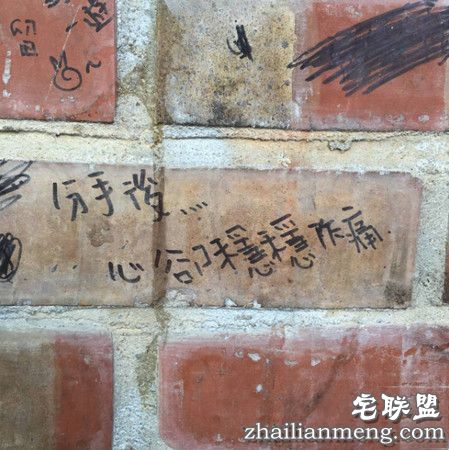 分手後...
心卻穩穩作痛
宅联盟
zhailianmeng.com